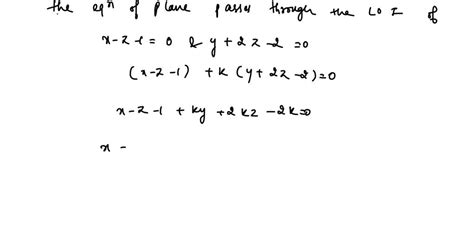 the eqn of plane passes through the LOI of
x-z-1=0 & y+2z-2=0
(x-z-1) + k(y+2z-2)=0
x-z-1 + ky +2kz -2k=0
x -